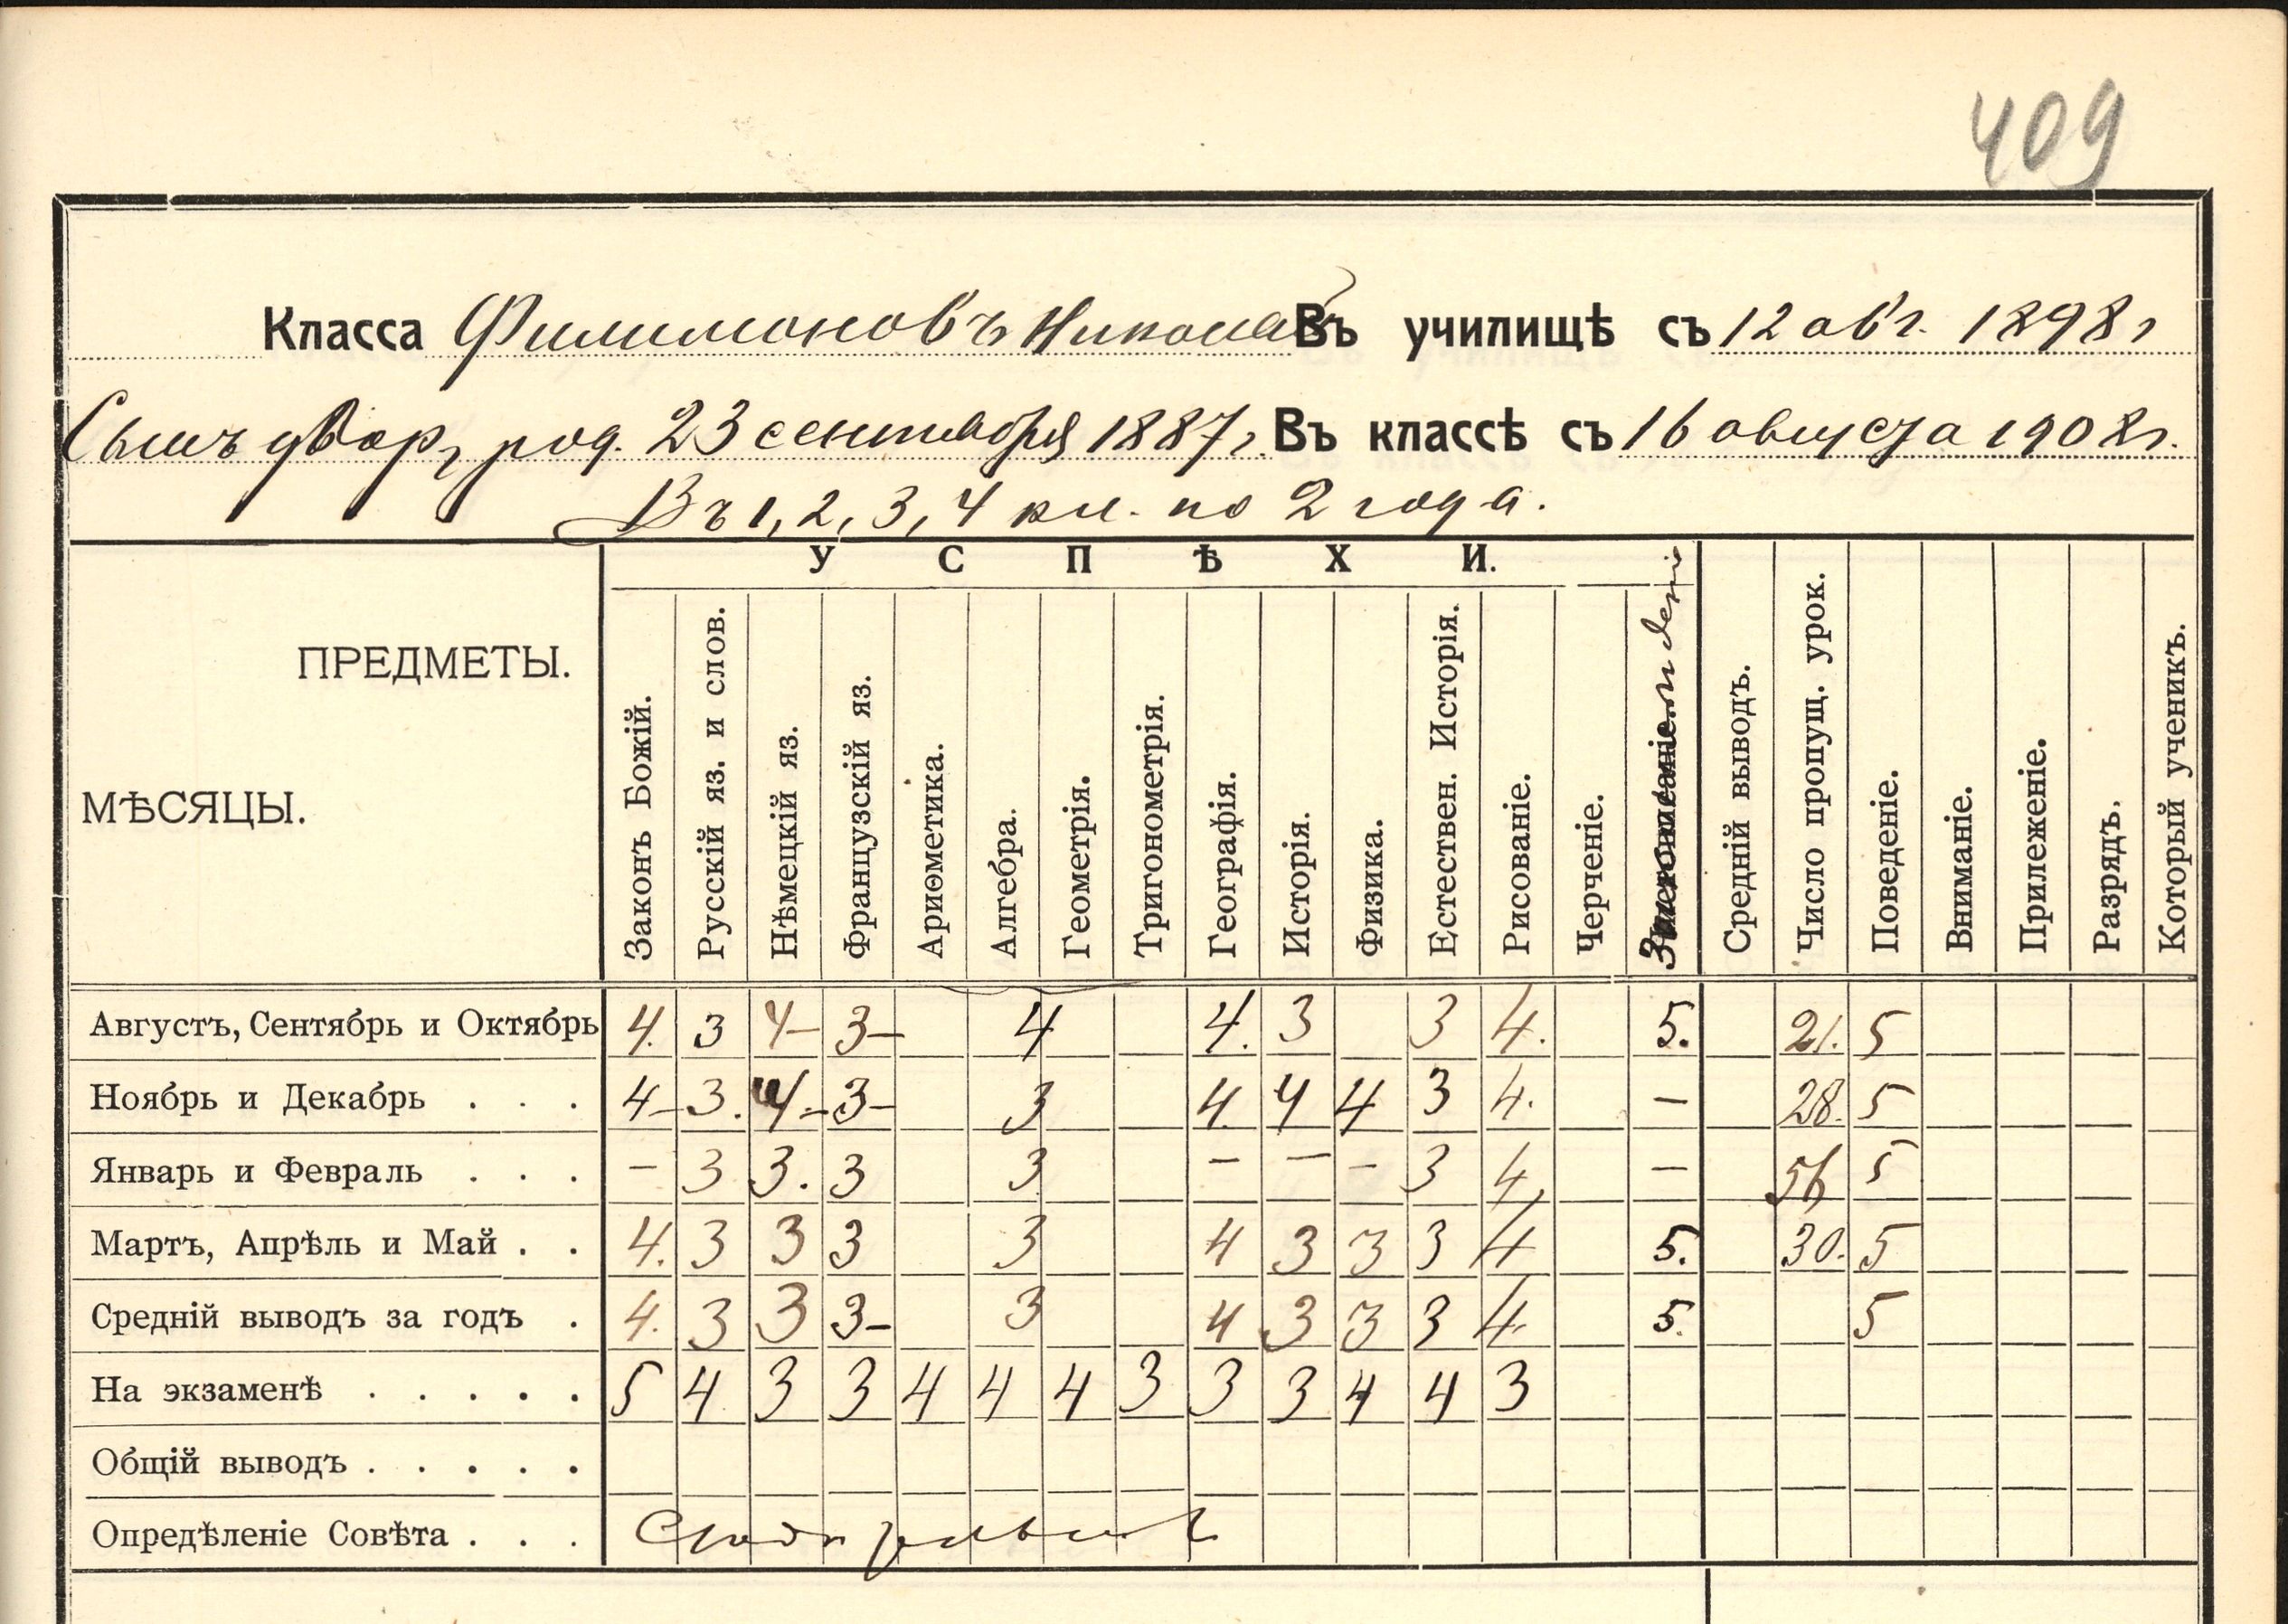 409
Класса Филимоновъ Николай Въ училищѣ съ 12 авг. 1898 г
Сынъ двор, род. 23 сентября 1887 г. Въ классѣ съ 16 августа 1908 г.
Въ 1, 2, 3, 4 кл. по 2 года.
УСПѢХИ.
ПРЕДМЕТЫ.
МѢСЯЦЫ.
Законъ Божій.
Русскій яз. и слов.
Нѣмецкій яз.
Французскій яз.
Ариѳметика.
Алгебра.
Геометрія.
Тригонометрія.
Географія.
Исторія.
Физика.
Естествен. Исторія.
Рисованіе.
Черченіе.
Средній выводъ.
Число пропущ. урок.
Поведеніе.
Вниманіе.
Прилежаніе.
Разрядъ.
Который ученикъ.
Августъ, Сентябрь и Октябрь 4. 3 4- 3- 4 4. 3 3 4. 5. 21. 5
Ноябрь и Декабрь . . . 4- 3. 4- 3- 3 4. 4 4 3 4. — 28. 5
Январь и Февраль . . . — 3 3. 3 3 — — — 3 4, — 56 5
Мартъ, Апрѣль и Май . . 4. 3 3 3 3 4 3 3 3 4 5. 30. 5
Средній выводъ за годъ . 4. 3 3 3- 3 4 3 3 3 4. 5. 5
На экзаменѣ . . . . . 5 4 3 3 4 4 4 3 3 3 4 4 3
Общій выводъ . . . . .
Опредѣленіе Совѣта . . .